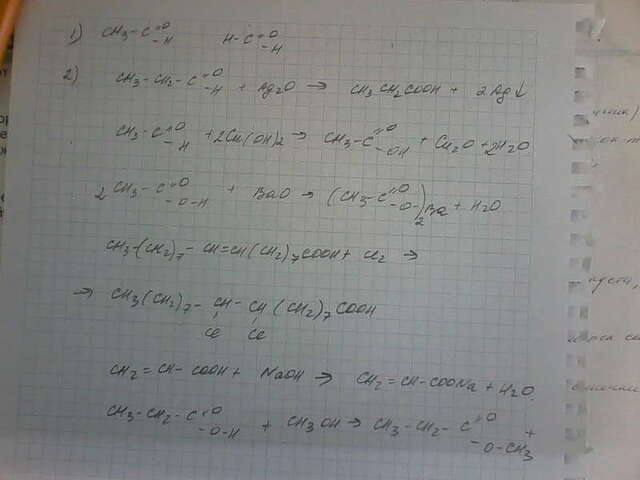 1) CH3-C=O-H H-C=O-H
2) CH3-CH2-C=O-H + Ag2O → CH3CH2COOH + 2Ag↓
CH3-C=O-H + 2Cu(OH)2 → CH3-C=O-OH + Cu2O + 2H2O
2CH3-C=O-O-H + BaO → (CH3-C=O-O-)2Ba + H2O
CH3-(CH2)7-CH=CH(CH2)7COOH + Cl2 →
→ CH3(CH2)7-CH-CH(CH2)7COOH
Cl Cl
CH2=CH-COOH + NaOH → CH2=CH-COONa + H2O
CH3-CH2-C=O-O-H + CH3OH → CH3-CH2-C=O-O-CH3 +